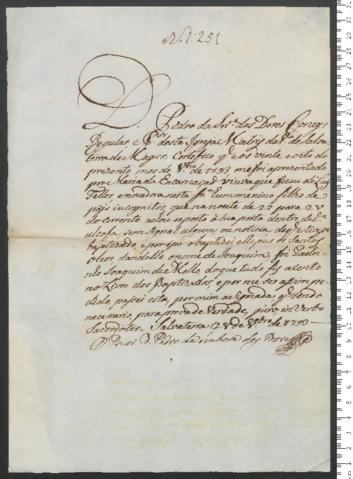 N.º 251
D. Pedro da Snr.ª das Dores Conego
Regular e P.or desta Igreja Matriz da V.ª de Salva
terra de Magos. Certefico q̃ aos vinte e oito do
prezente mes de 8.bro de 1793 me foi aprezentado
por Maria da Encarnaçaõ Viuva que ficou de Luis
Telles, moradora nesta V.ª hum menino filho de
pais incognitos, que na noite de 27 para 28
do corrente achou exposto à sua porta dentro de hũa
alcofa sem signal algum ou noticia de q̃ estava
baptizado e por isso o baptizei e lhe pus os Santos
oleos dandolhe o nome de Joaquim foi Padri
nho Joaquim de Mello do que tudo fiz acento
no Livro dos Baptizados e por me ser a sim pe
dido, passei esta, por mim asignada q̃ sendo
necesario, para prova de verdade, juro in Verbo
Sacerdotis. Salvaterra 28 de 8.bro de 1793
O Prior D. Pedro da Senhora das Dores